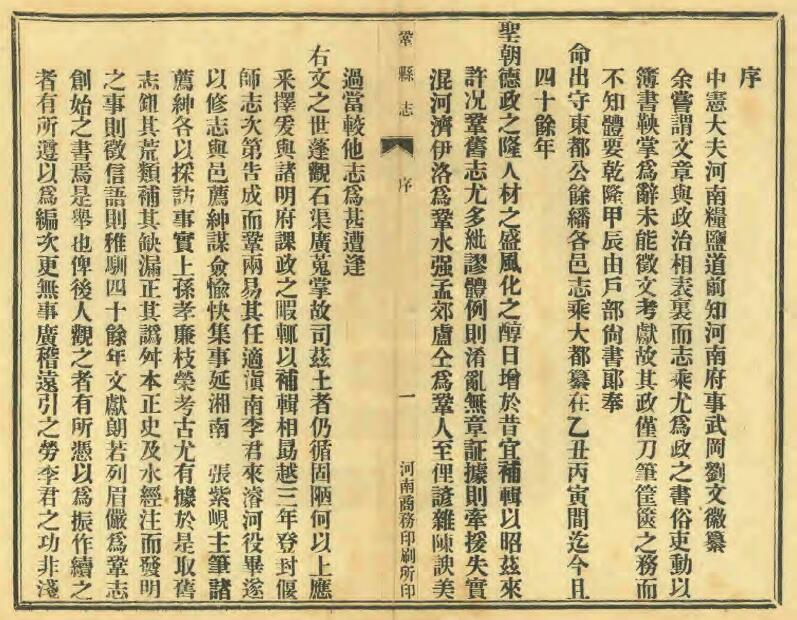 序
中憲大夫河南糧鹽道前知河南府事武岡劉文徽纂
余嘗謂文章與政治相表裏而志乘尤爲政之書俗吏動以
簿書鞅掌爲辭未能徵文考獻故其政僅刀筆筐篋之務而
不知體要乾隆甲辰由戶部尙書郞奉
命出守東都公餘繙各邑志乘大都纂在乙丑丙寅間迄今且
四十餘年
聖朝德政之隆人材之盛風化之醇日增於昔宜補輯以昭茲來
許况鞏舊志尤多紕謬體例則淆亂無章証據則牽援失實
混河濟伊洛爲鞏水强孟郊盧仝爲鞏人至俚諺雜陳諛美
鞏縣志
序
一
河南商務印刷所印
過當較他志爲甚遭逢
右文之世蓬觀石渠廣蒐掌故司茲土者仍循固陋何以上應
釆擇爰與諸明府課政之暇輒以補輯相勗越三年登封偃
師志次第告成而鞏兩易其任適滇南李君來濬河役畢遂
以修志與邑薦紳謀僉愉快集事延湘南 張紫峴主筆諸
薦紳各以採訪事實上孫孝廉枝榮考古尤有據於是取舊
志鉏其荒纇補其缺漏正其譌舛本正史及水經注而發明
之事則徵信語則雅馴四十餘年文獻朗若列眉儼爲鞏志
創始之書焉是舉也俾後人觀之者有所憑以爲振作續之
者有所遵以爲編次更無事廣稽遠引之勞李君之功非淺